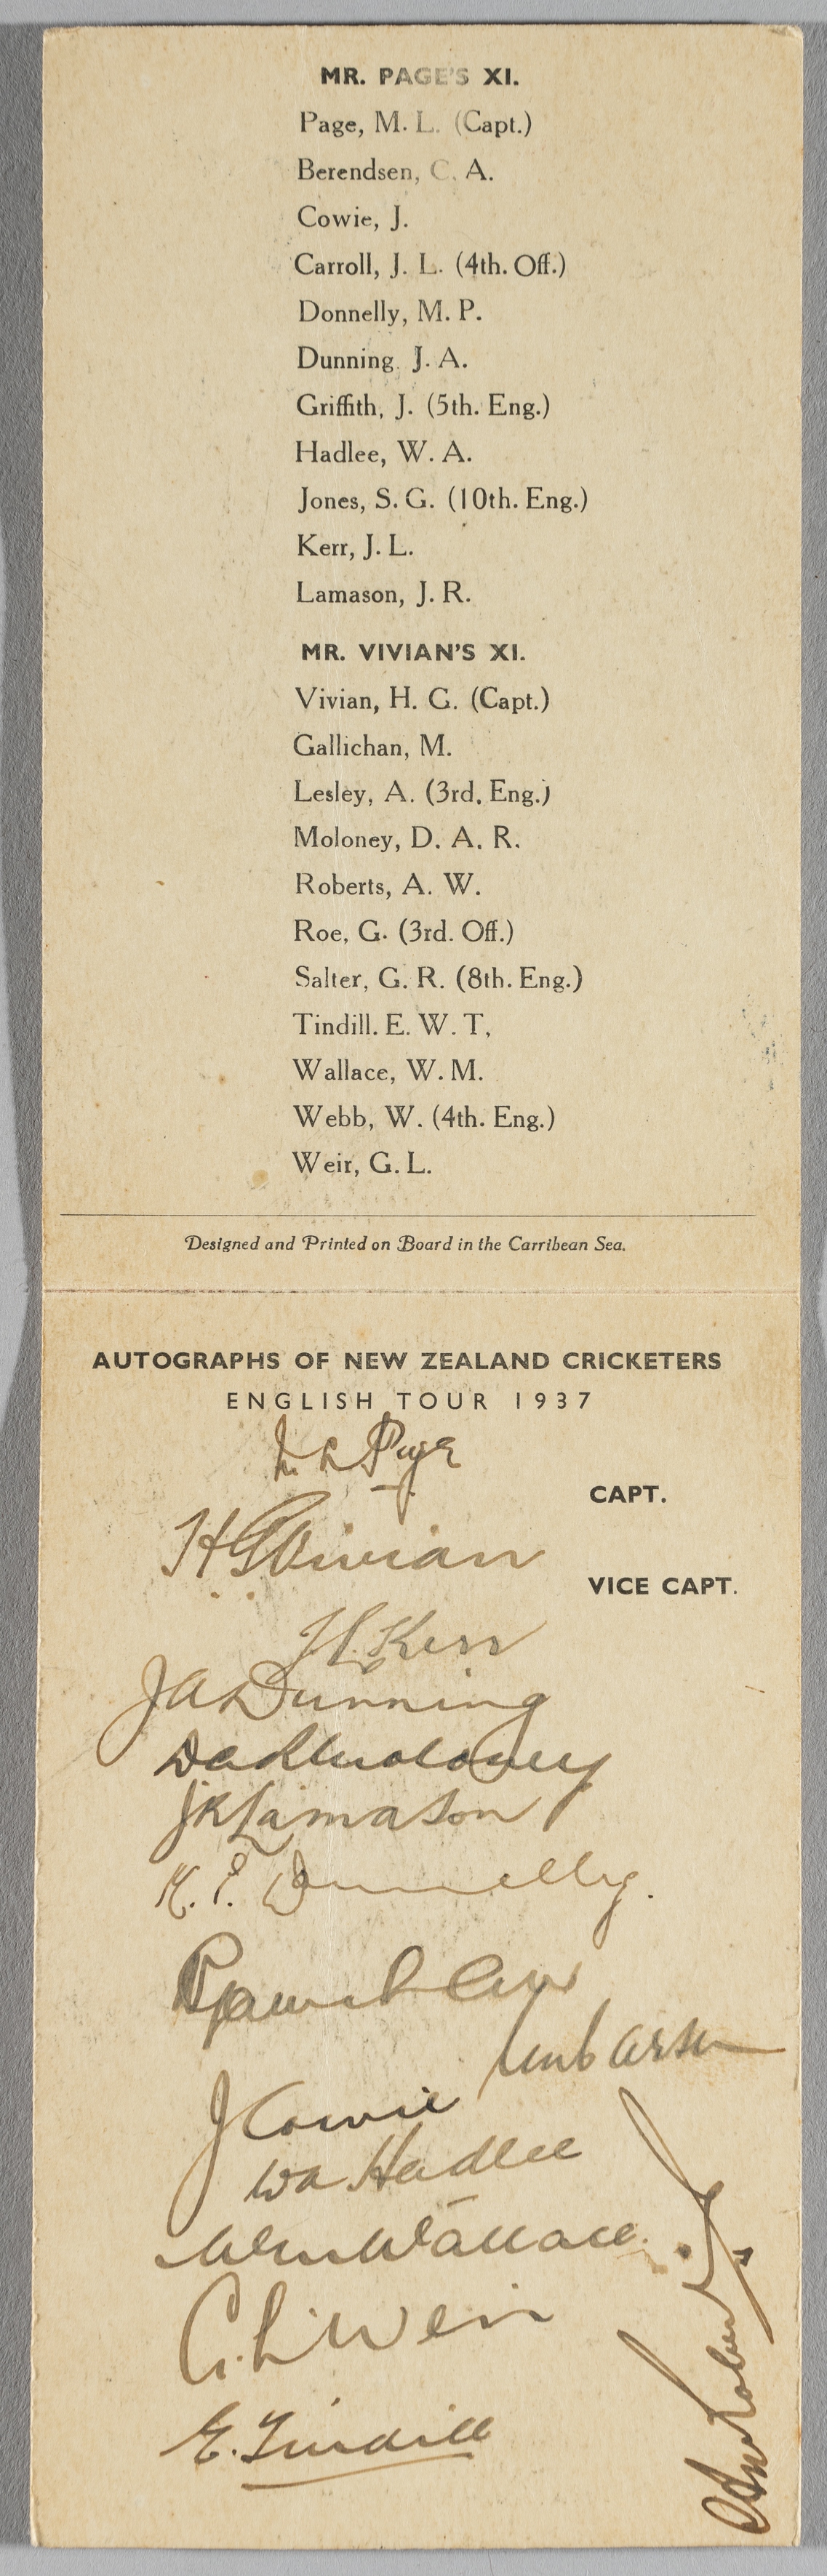 MR. PAGE'S XI.
Page, M. L. (Capt.)
Berendsen, C. A.
Cowie, J.
Carroll, J. L. (4th. Off.)
Donnelly, M. P.
Dunning J. A.
Griffith, J. (5th. Eng.)
Hadlee, W. A.
Jones, S. G. (10th. Eng.)
Kerr, J. L.
Lamason, J. R.
MR. VIVIAN'S XI.
Vivian, H. G. (Capt.)
Gallichan, M.
Lesley, A. (3rd. Eng.)
Moloney, D. A. R.
Roberts, A. W.
Roe, G. (3rd. Off.)
Salter, G. R. (8th. Eng.)
Tindill. E. W. T,
Wallace, W. M.
Webb, W. (4th. Eng.)
Weir, G. L.
Designed and Printed on Board in the Carribean Sea.
AUTOGRAPHS OF NEW ZEALAND CRICKETERS
ENGLISH TOUR 1937
M L Page
CAPT.
H G Vivian
VICE CAPT.
J. L. Kerr
J A Dunning
D A R Moloney
J R Lamason
M. P. Donnelly.
J Cowie
W A Hadlee
W Merv Wallace.
G. L. Weir
E. Tindill
A W Roberts